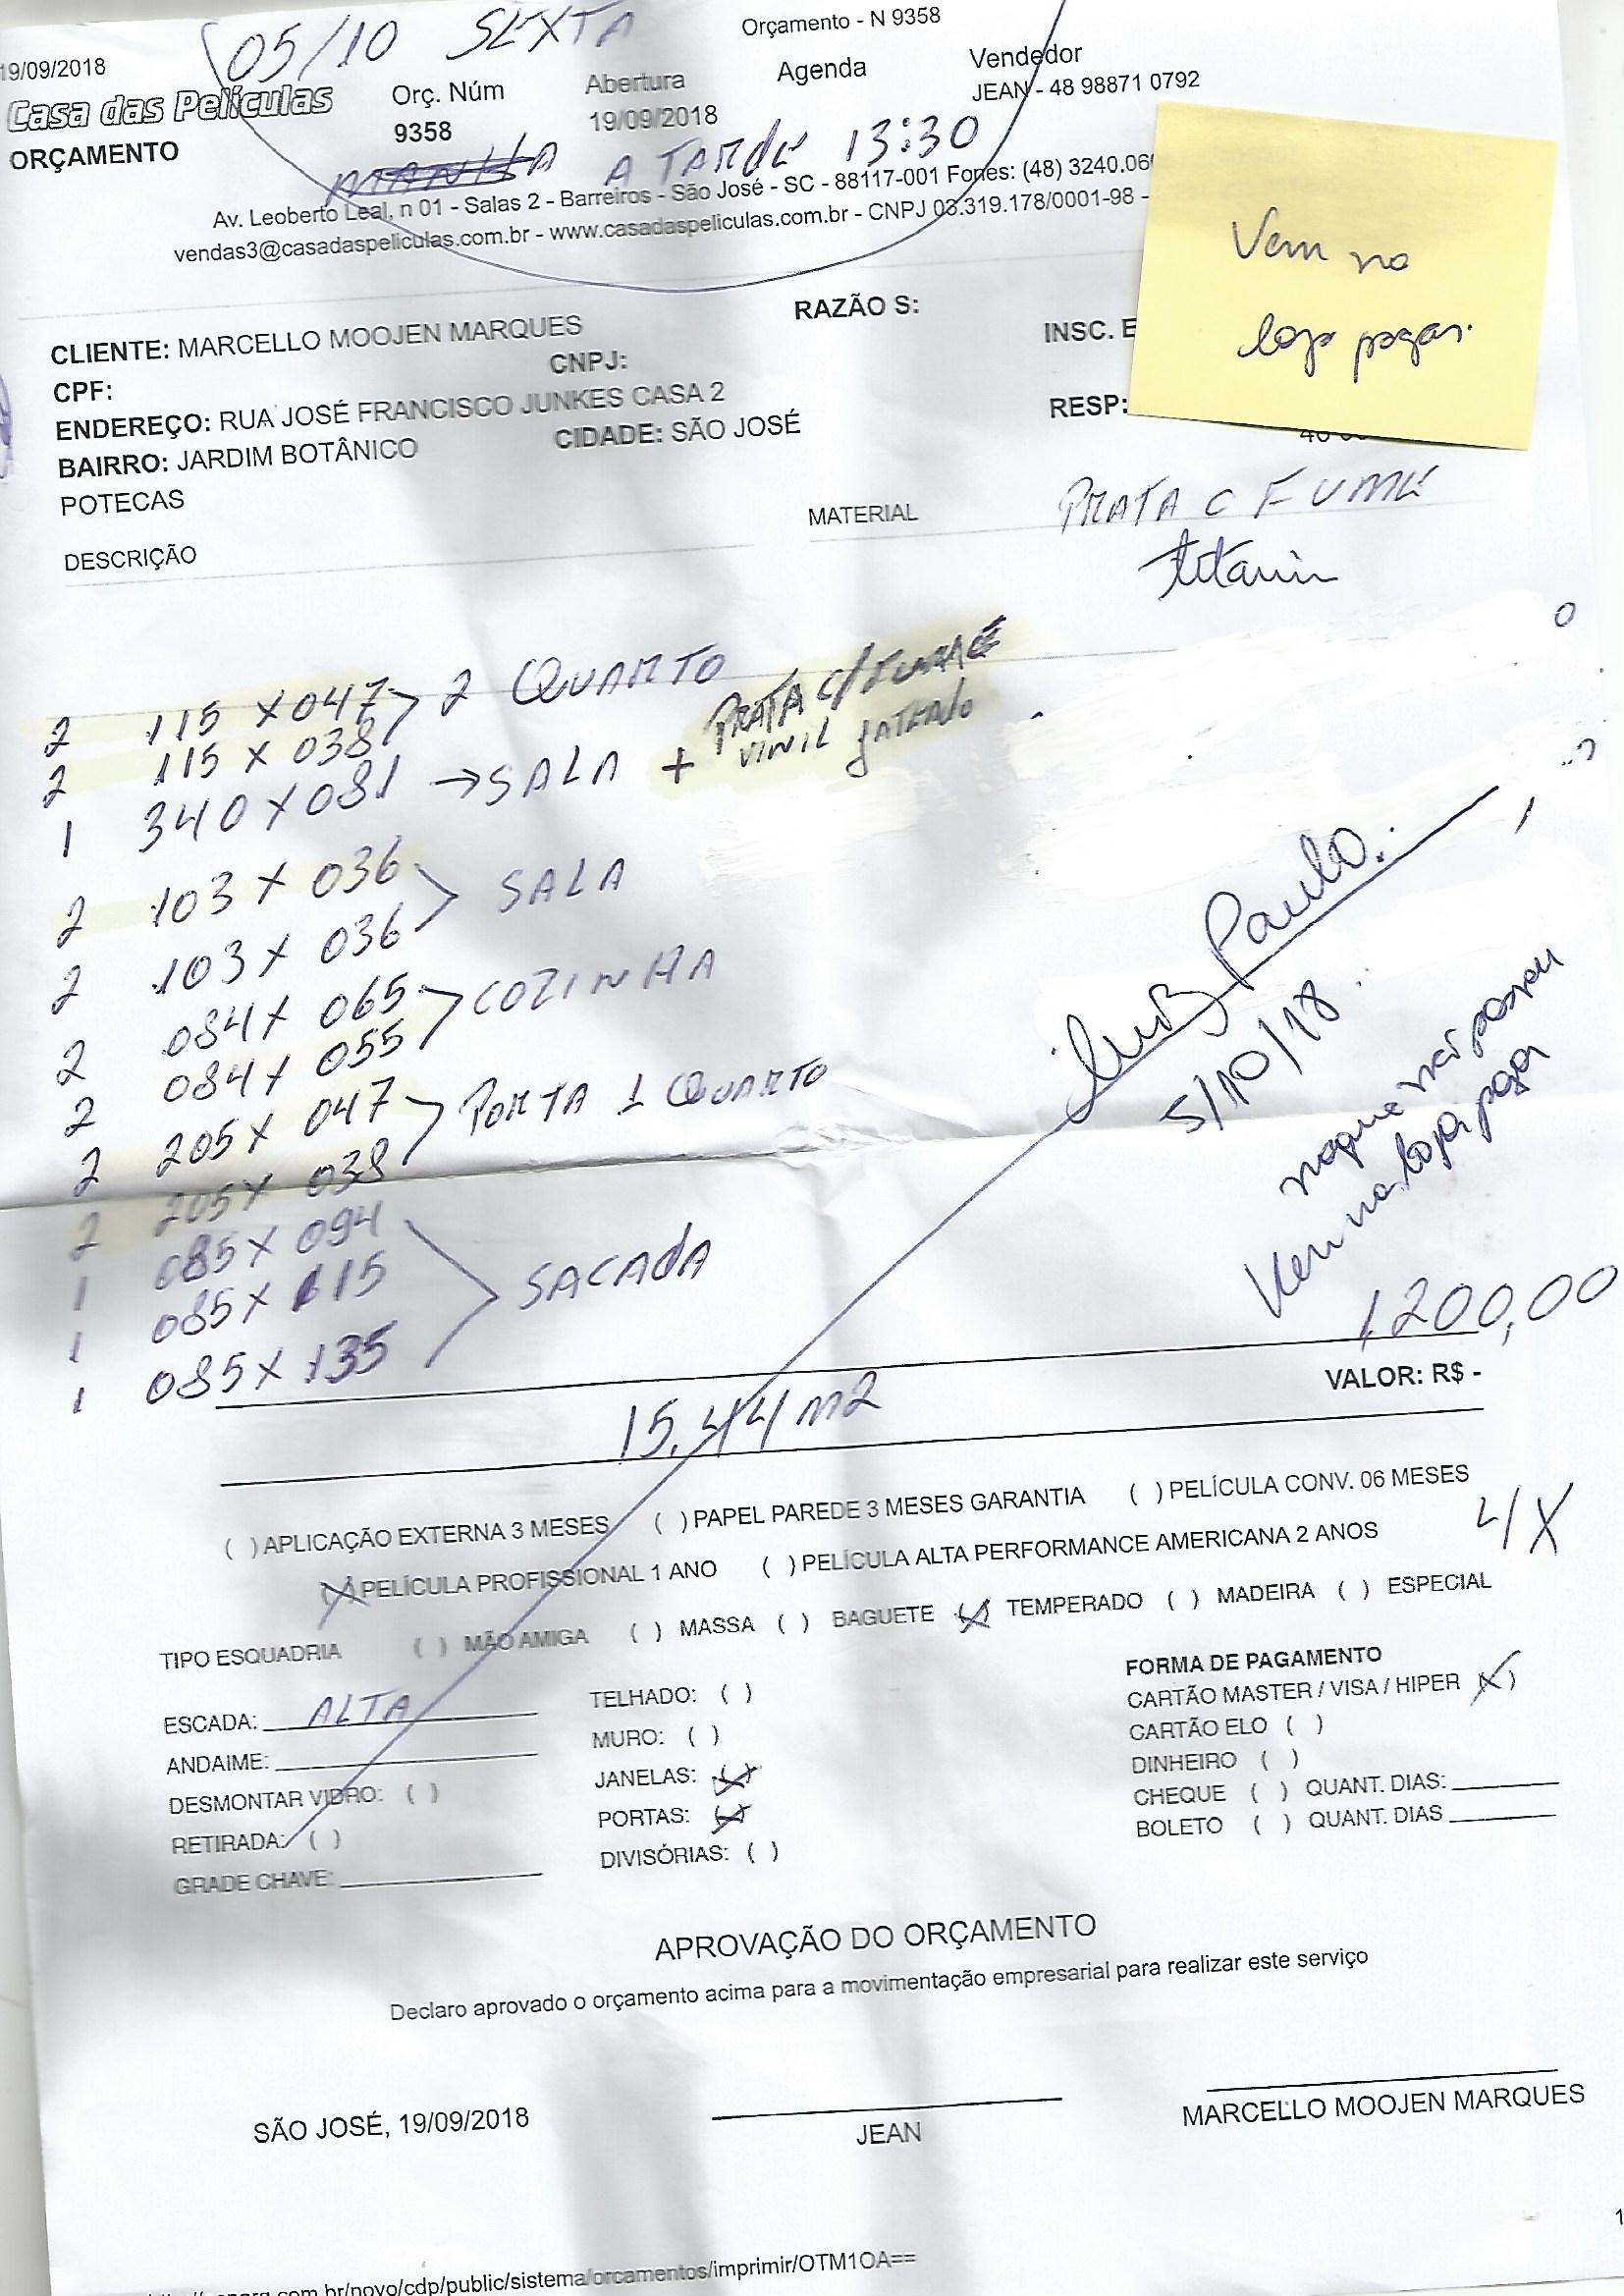 05/10 SEXTA
Orçamento - N 9358
19/09/2018
Casa das Películas
ORÇAMENTO
Orç. Núm
9358
Abertura
19/09/2018
Agenda
Vendedor
JEAN - 48 98871 0792
MANHA A TARDE 13:30
Av. Leoberto Leal, n 01 - Salas 2 - Barreiros - São José - SC - 88117-001 Fones: (48) 3240.06
vendas3@casadaspeliculas.com.br - www.casadaspeliculas.com.br - CNPJ 03.319.178/0001-98 -
Vem na
loja pagar.
CLIENTE: MARCELLO MOOJEN MARQUES
RAZÃO S:
CPF:
CNPJ:
INSC. E
ENDEREÇO: RUA JOSÉ FRANCISCO JUNKES CASA 2
BAIRRO: JARDIM BOTÂNICO
CIDADE: SÃO JOSÉ
RESP:
POTECAS
DESCRIÇÃO
MATERIAL
PRATA C FUME
titanin
2 115 X 047 2 QUARTO
2 115 X 038
PRATA C/FUMAÊ
VINIL JATEADO
1 340 X 081 → SALA +
2 103 X 036 SALA
2 103 X 036
2 084 X 065 COZINHA
2 084 X 055
2 205 X 047 PORTA 1 QUARTO
2 205 X 038
1 085 X 094
1 085 X 115 SACADA
1 085 X 135
Luiz Paulo.
5/10/18.
Vem na loja pagar
1200,00
VALOR: R$ -
15.44 m2
( ) APLICAÇÃO EXTERNA 3 MESES ( ) PAPEL PAREDE 3 MESES GARANTIA ( ) PELÍCULA CONV. 06 MESES
(X) PELÍCULA PROFISSIONAL 1 ANO ( ) PELÍCULA ALTA PERFORMANCE AMERICANA 2 ANOS
4X
TIPO ESQUADRIA ( ) MÃO AMIGA ( ) MASSA ( ) BAGUETE (X) TEMPERADO ( ) MADEIRA ( ) ESPECIAL
ESCADA: ALTA
ANDAIME:
DESMONTAR VIDRO: ( )
RETIRADA: ( )
GRADE CHAVE:
TELHADO: ( )
MURO: ( )
JANELAS: (X)
PORTAS: (X)
DIVISÓRIAS: ( )
FORMA DE PAGAMENTO
CARTÃO MASTER / VISA / HIPER (X)
CARTÃO ELO ( )
DINHEIRO ( )
CHEQUE ( ) QUANT. DIAS:
BOLETO ( ) QUANT. DIAS
APROVAÇÃO DO ORÇAMENTO
Declaro aprovado o orçamento acima para a movimentação empresarial para realizar este serviço
SÃO JOSÉ, 19/09/2018
JEAN
MARCELLO MOOJEN MARQUES
.com.br/novo/cdp/public/sistema/orcamentos/imprimir/OTM1OA==